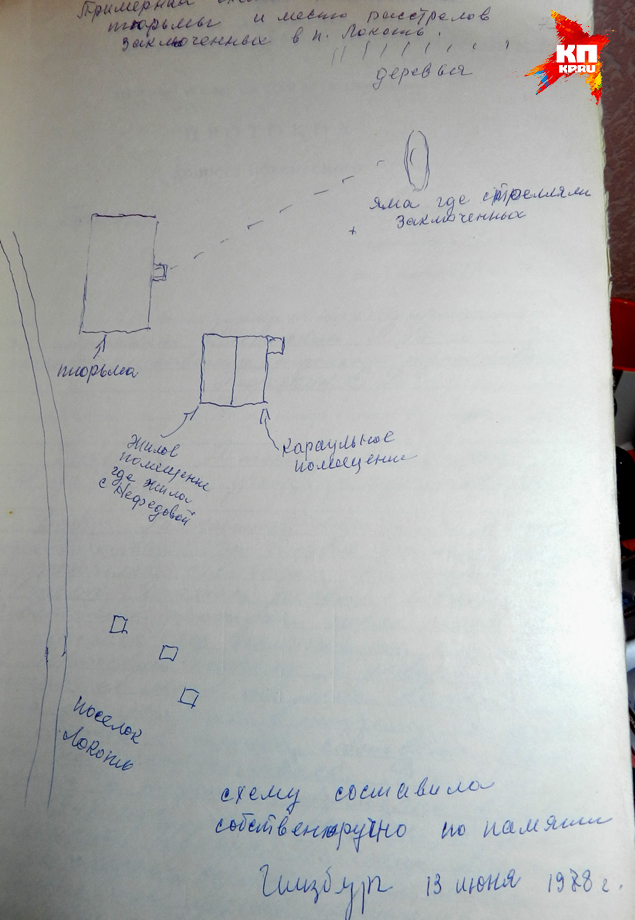 Примерная схема
тюрьмы и место расстрелов
заключенных в п. Локоть.
КП
KP.RU
деревья
яма где стреляли
заключенных
тюрьма
Жилое
помещение
где жила
с Нефедовой
караульное
помещение
поселок
Локоть
схему составила
собственоручно по памяти
Гинзбург 13 июня 1978 г.